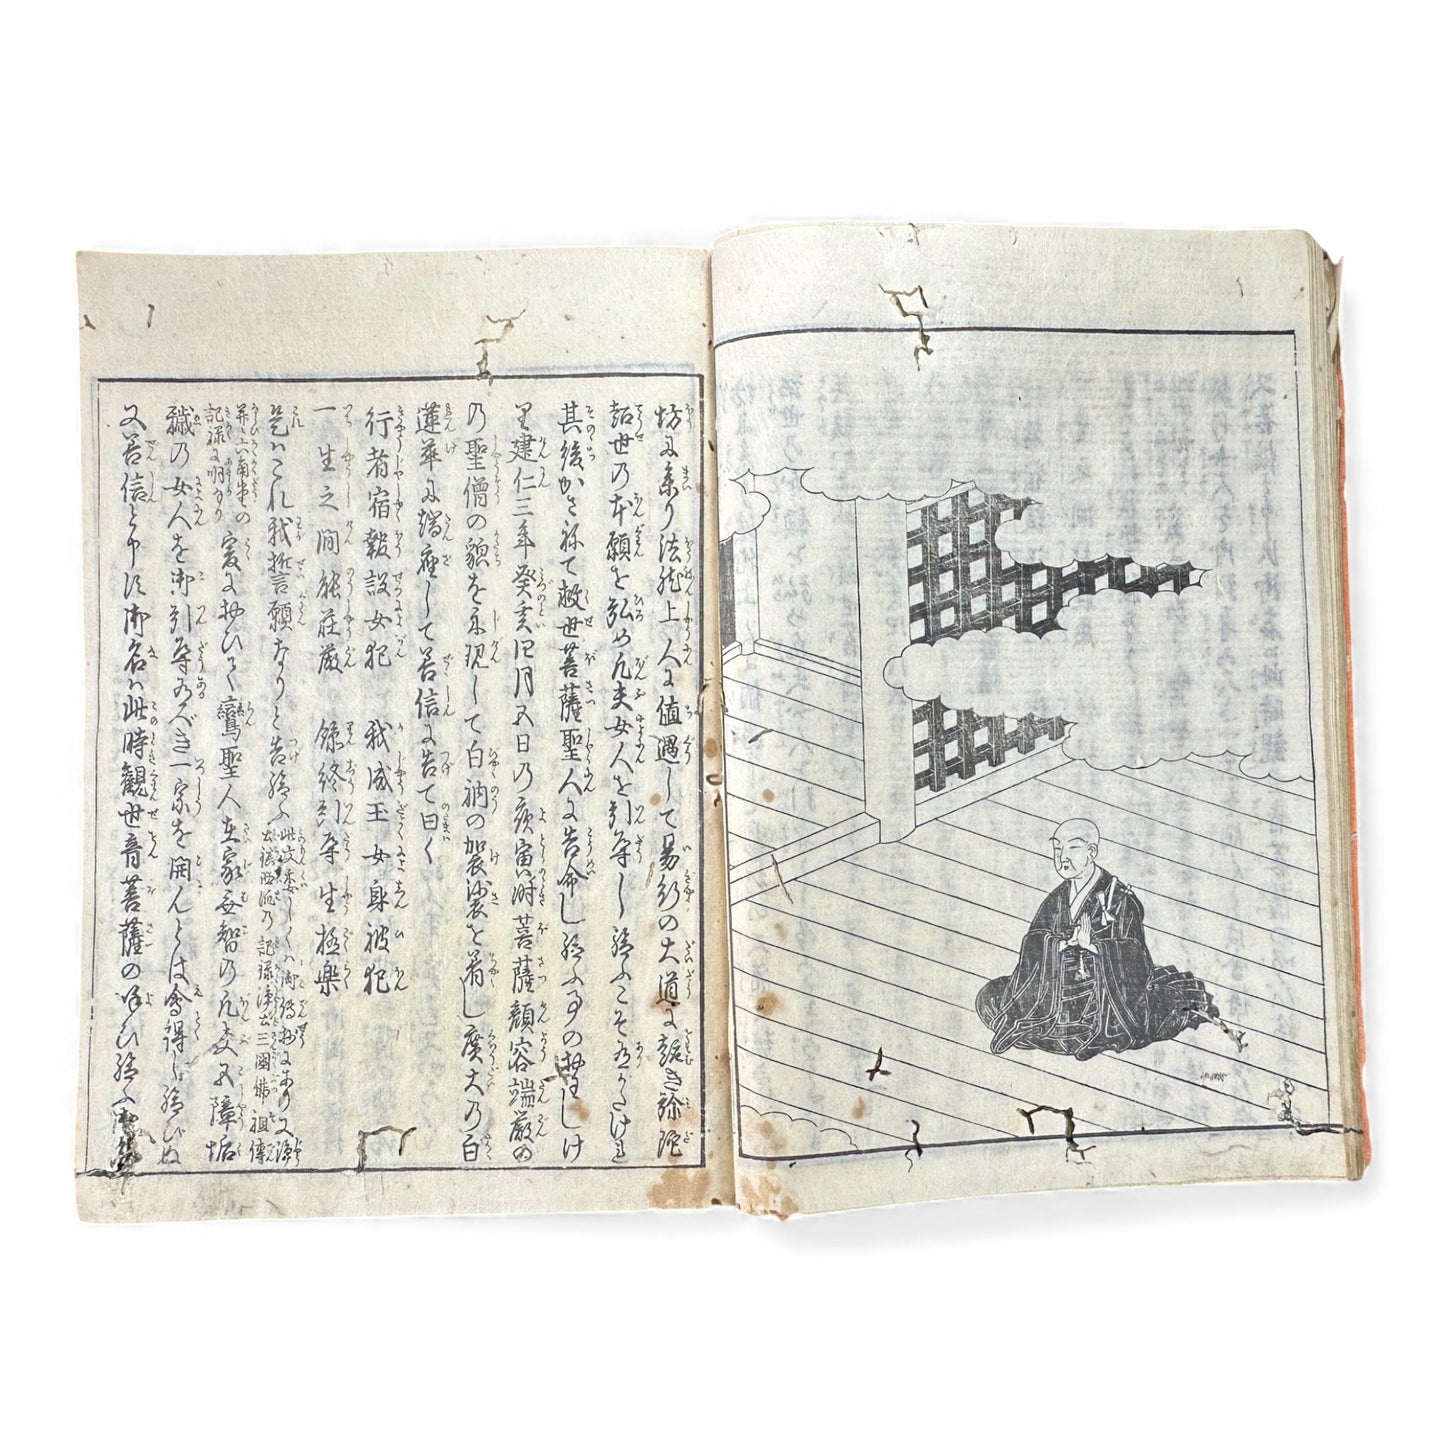 坊に参り法然上人に値遇して易行の大道に趣き弥陀
超世の本願を弘め凡夫女人を引導し給ふこそ有がたけれ
其後かさねて救世菩薩聖人に告命し給ふ事の侍りしけ
り建仁三年癸亥四月五日の夜寅時菩薩顔容端厳の
乃聖僧の貌を示現して白衲の袈裟を着し広大乃白
蓮華に端座して善信に告て曰く
行者宿報設女犯 我成玉女身被犯
一生之間能荘厳 臨終引導生極楽
是ハこれ我誓言願なりと告給ふ
此文委しくハ御伝抄にあり又浄
土鎮西派乃記録浄土三国佛祖傳
并に六角堂の
記録に明なり
爰に於ひて鸞聖人在家無智の凡夫五障垢
穢乃女人を御引導有べき一宗を開んとは会得し給ひぬ
又善信と申す御名ハ此時観世音菩薩の呼ひ給ふ御